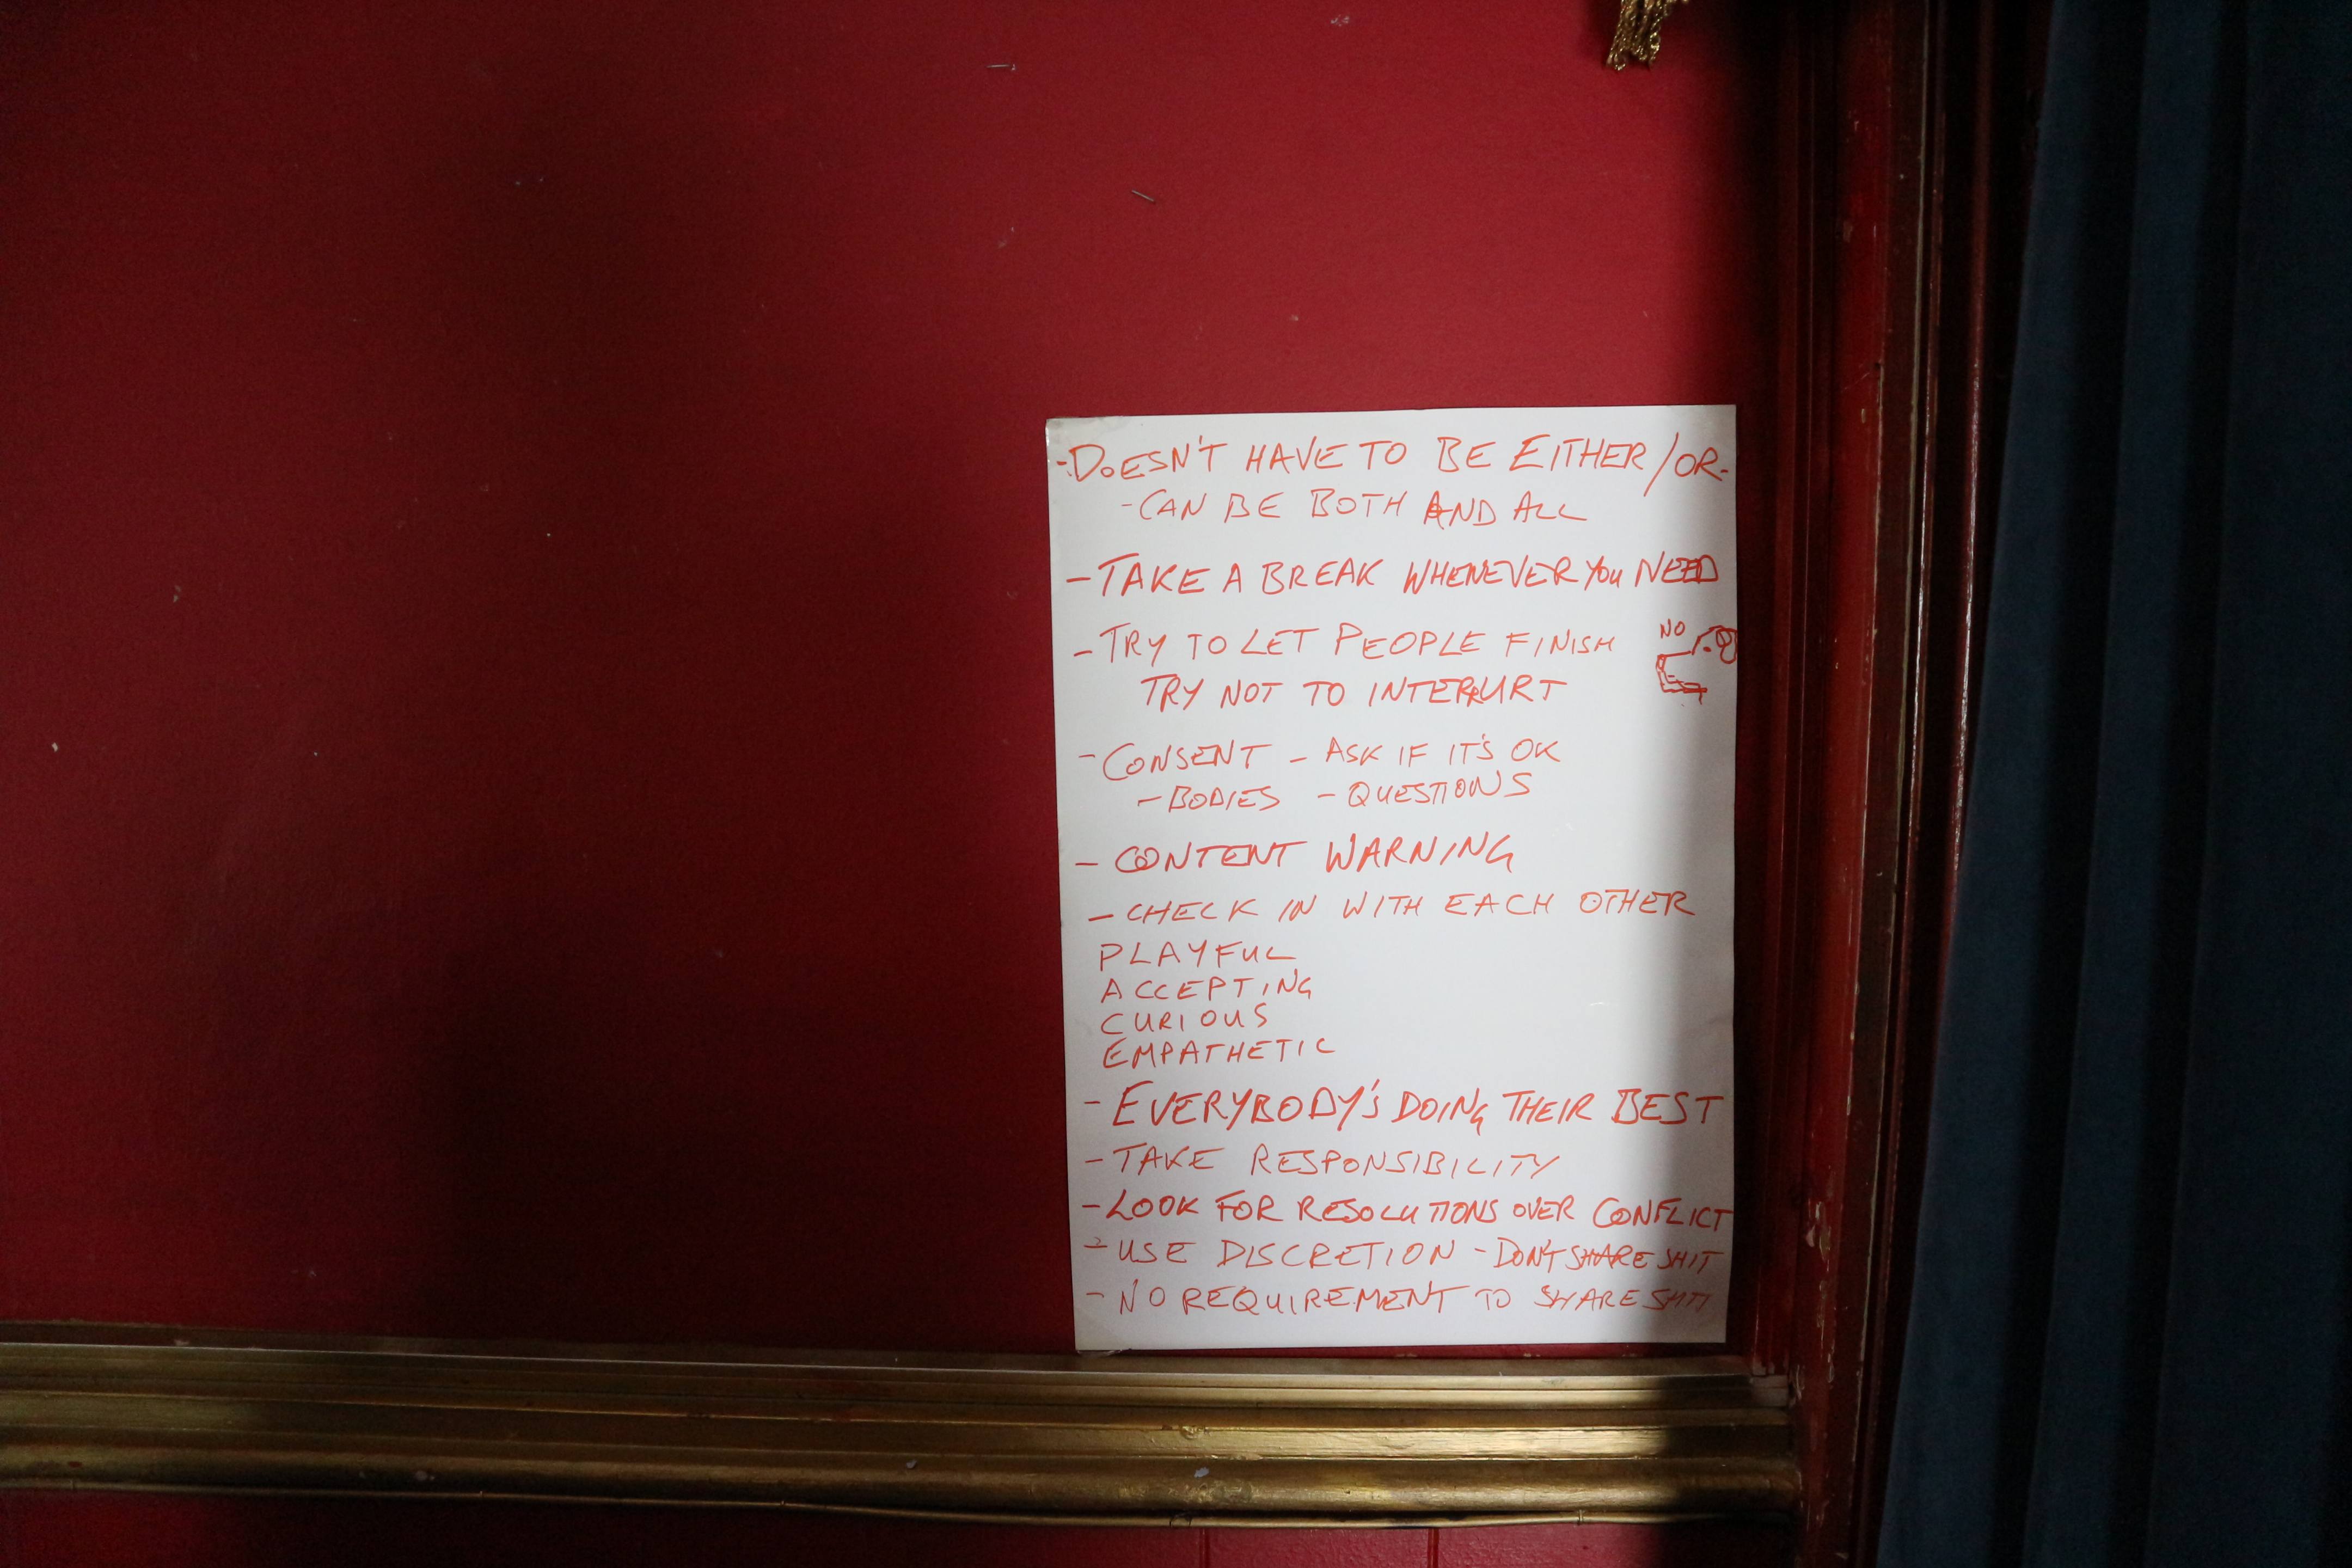 -DOESN'T HAVE TO BE EITHER/OR-
-CAN BE BOTH AND ALL
-TAKE A BREAK WHENEVER YOU NEED
-TRY TO LET PEOPLE FINISH
NO
TRY NOT TO INTERRURT
-CONSENT - ASK IF IT'S OK
-BODIES -QUESTIONS
-CONTENT WARNING
-CHECK IN WITH EACH OTHER
PLAYFUL
ACCEPTING
CURIOUS
EMPATHETIC
-EVERYBODY'S DOING THEIR BEST
-TAKE RESPONSIBILITY
-LOOK FOR RESOLUTIONS OVER CONFLICT
-USE DISCRETION -DON'T SHARE SHIT
-NO REQUIREMENT TO SHARE SHIT